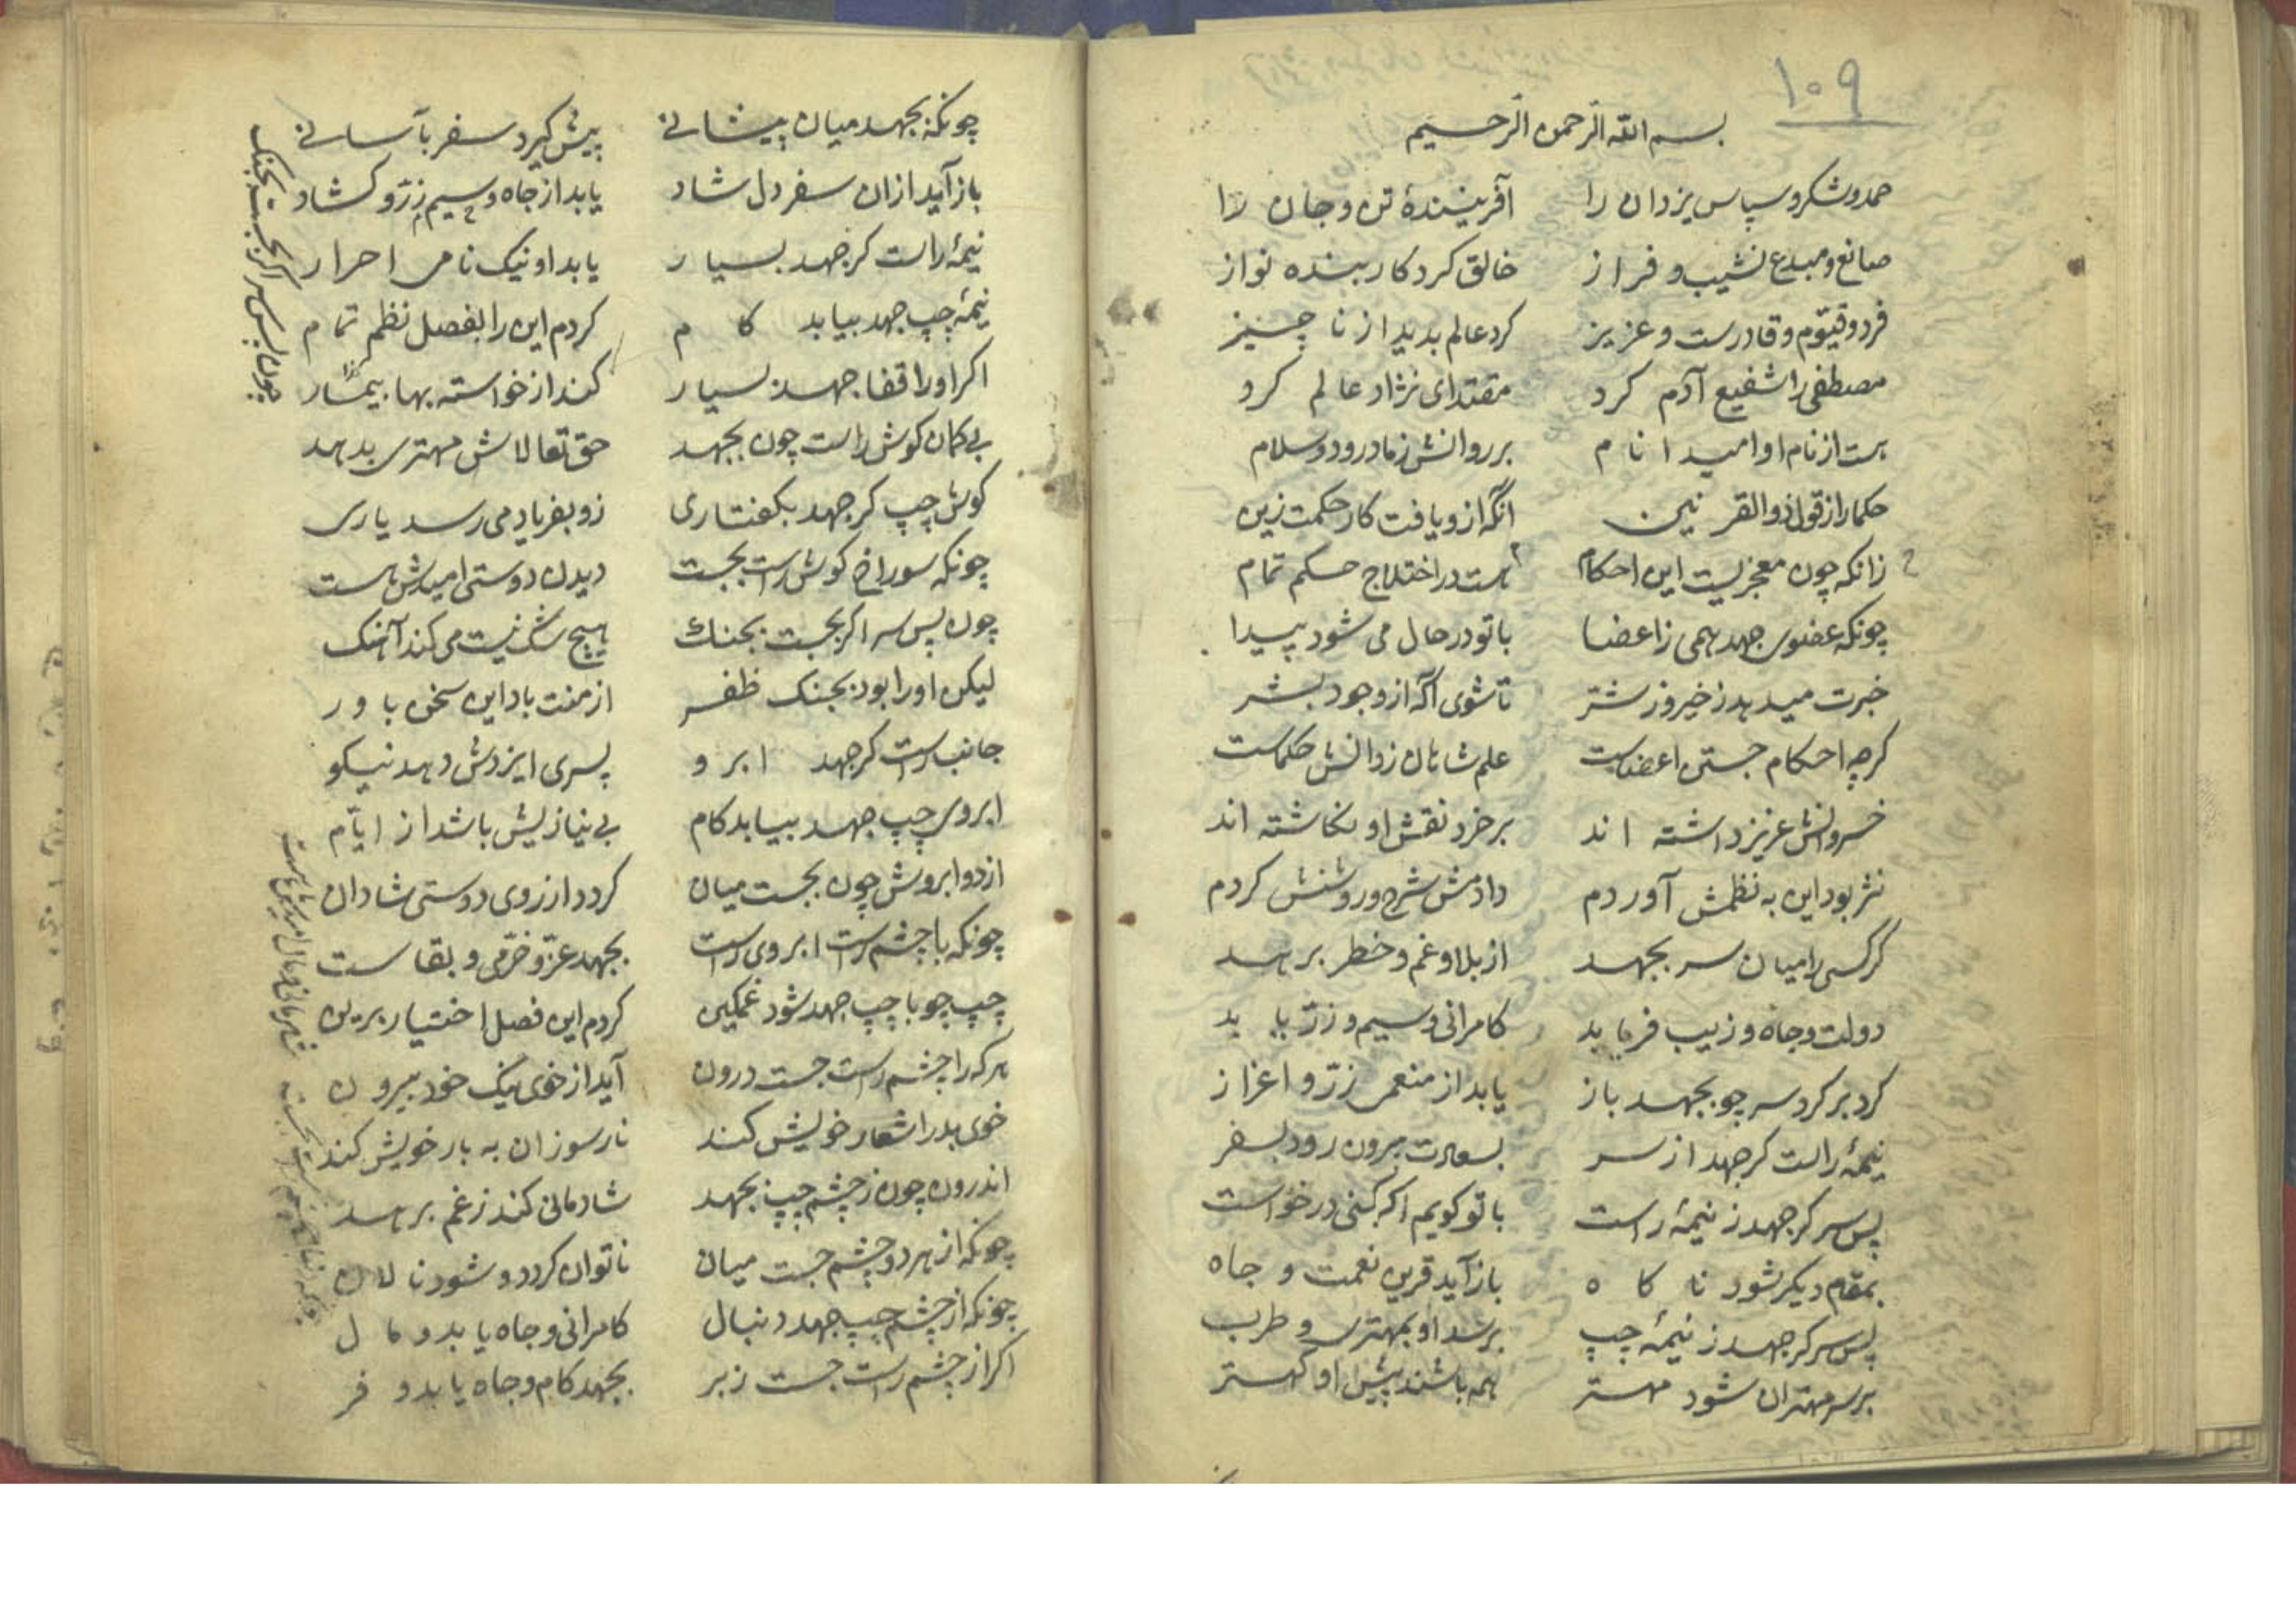 ۱۰۹
بسم الله الرحمن الرحیم
حمد و شکر و سپاس یزدان را آفرینندهٔ تن و جان را
صانع و مبدع نشیب و فراز خالق کردکار بنده نواز
فرد و قیّوم و قادرست و عزیز کرد عالم بدید از ناچیز
مصطفی را شفیع آدم کرد مقتدای نژاد عالم کرد
هست از نام او امید انام بر روانش ز ما درود و سلام
حکما را ز قول ذوالقرنین آنکه ازو یافت کار حکمت زین
زانکه چون معجزیست این احکام هست در اختلاج حکم تمام
چونکه عضوی جهد همی ز اعضا با تو در حال می شود پیدا
خبرت میدهد ز خیر و ز شر تا شوی آکه از وجود بشر
کرچه احکام جستن اعضاست علم شاهان ز دانش حکماست
خسروانش عزیز داشته اند بر خرد نقش او نکاشته اند
نثر بود این به نظمش آوردم دادمش شرح و روشنش کردم
کر کسی را میان سر بجهد از بلا و غم و خطر برهد
دولت و جاه و زیب و فر یابد کامرانی و سیم و زرّ یابد
کرد بر کرد سر چو بجهد باز یابد از منعمی زرّ و اعزاز
نیمهٔ راست کر جهد از سر بسعادت برون رود بسفر
پس سر کر جهد ز نیمهٔ راست با تو کویم اکر کنی درخواست
بمقام دیکر شود ناکاه باز آید قرین نعمت و جاه
پس سر کر جهد ز نیمهٔ چپ برسد او بمهتری و طرب
بر سر مهتران شود مهتر همه باشند پیش او کهتر
چونکه بجهد میان پیشانی پیش کیرد سفر بآسانی
باز آید از ان سفر دل شاد یابد از جاه و سیم و زرّ و کشاد
نیمهٔ راست کر جهد بسیار یابد او نیک نامی احرار
نیمهٔ چپ جهد بیابد کام کردم این را بفصل نظم تمام
اکر او را قفا جهد بسیار کند از خواسته بها بیمار
بی کمان کوش راست چون بجهد حق تعالاش مهتری بدهد
کوش چپ کر جهد بکفتاری زو بفریاد می رسد یاری
چونکه سوراخ کوش راست بجست دیدن دوستی امیدش هست
چون پس سر اکر بجست بجنك هیچ شک نیست می کند آهنک
لیکن او را بود بجنک ظفر از منت باد این سخن باور
جانب راست کر جهد ابرو پسری ایزدش دهد نیکو
ابروی چپ جهد بیابد کام بی نیازیش باشد از ایّام
از دو ابروش چون بجست میان کردد از روی دوستی شادان
چونکه با چشم راست ابروی راست بجهد عزّ و خرّمی و بقاست
چپ چو با چپ جهد شود غمکین کردم این فصل اختیار برین
هر که را چشم راست جست درون آید از خوی نیک خود بیرون
خوی بد را شعار خویش کند نار سوزان به بار خویش کند
اندرون چون ز چشم چپ بجهد شادمانی کند ز غم برهد
چونکه از هر دو چشم جست میان ناتوان کردد و شود نالان
چونکه از چشم چپ جهد دنبال کامرانی و جاه یابد و مال
اکر از چشم راست جست زبر بجهد کام و جاه یابد و فر
چون پس سر اکر بجست بجنک